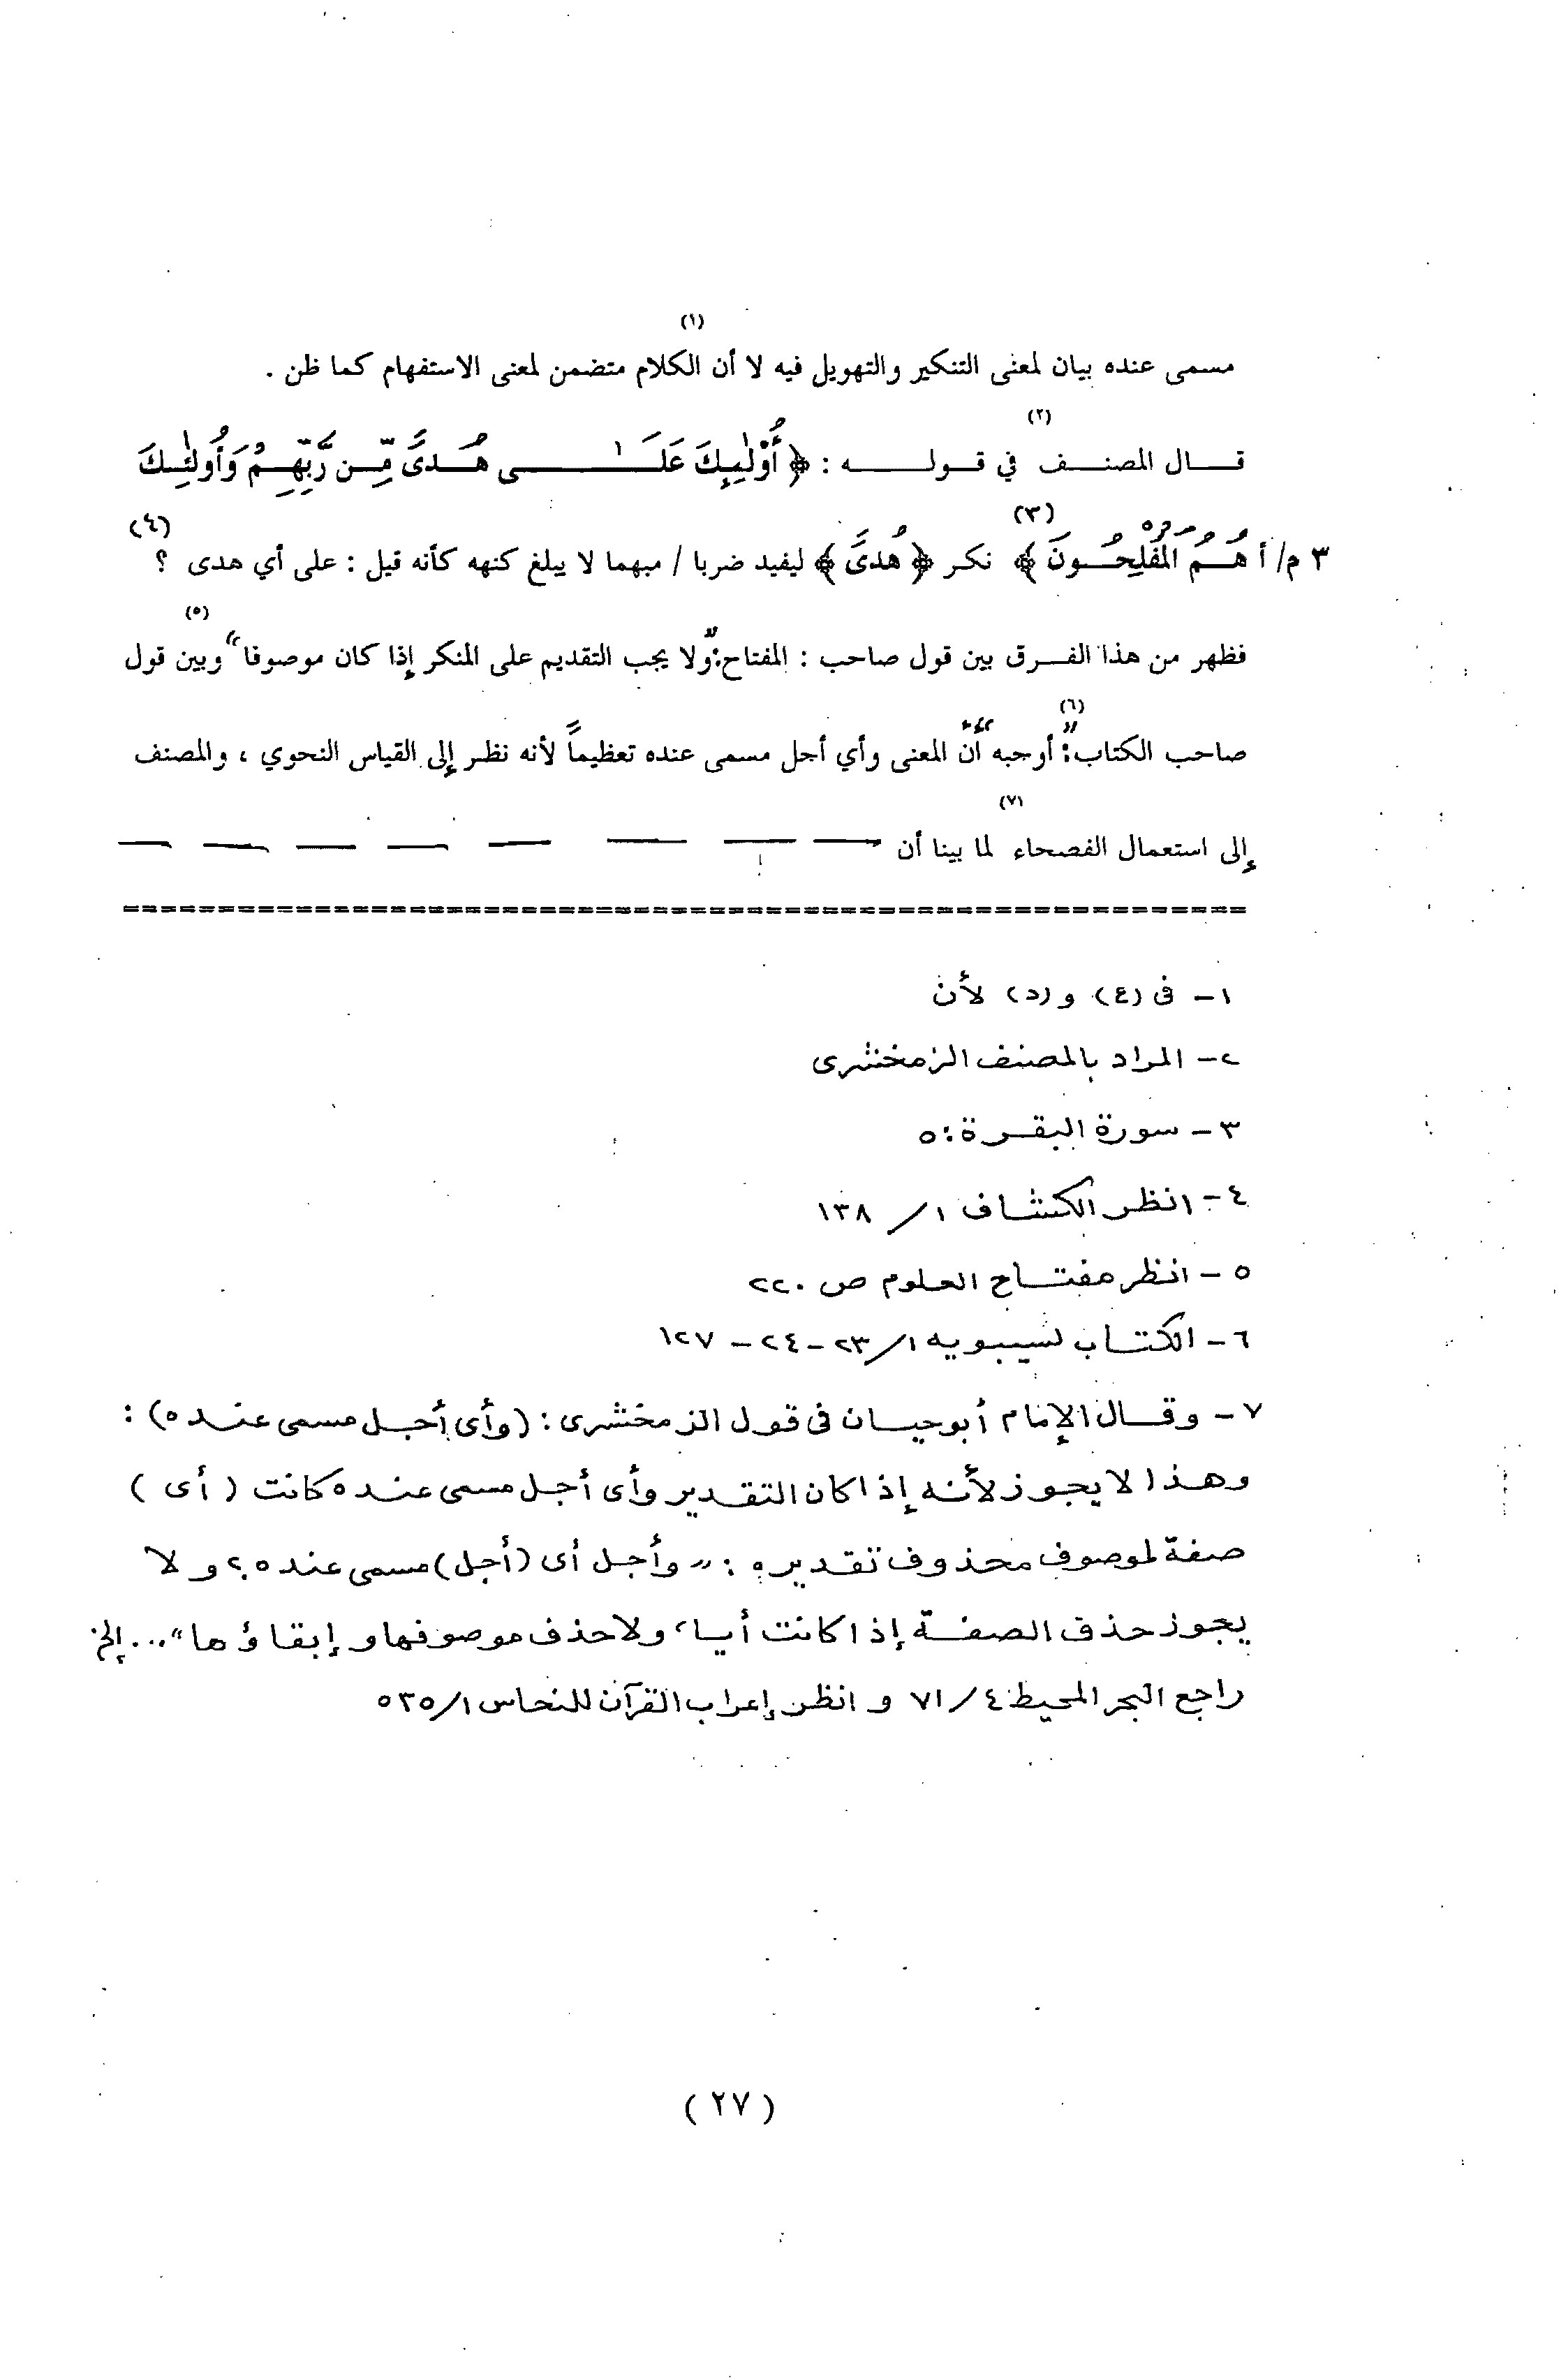 مسمى عنده بيان لمعنى التنكير والتهويل فيه لا أن (١) الكلام متضمن لمعنى الاستفهام كما ظن .
قــال المصنــف (٢) في قـولــــه : ﴿ أُوْلَٰئِكَ عَلَــــــــىٰ هُــدىً مِّــن رَّبِّهِــمْ وَأُولَٰئِـكَ
٣ م/ أ هُــمُ المُفْلِحُــونَ ﴾ (٣) نكـر ﴿ هُدىً ﴾ ليفيد ضربا / مبهما لا يبلغ كنهه كأنه قيل : على أي هدى ؟ (٤)
فظهر من هذا الفــرق بين قول صاحب : المفتاح : "ولا يجب التقديم على المنكر إذا كان موصوفا" (٥) وبين قول
صاحب الكتاب : (٦) " أوجبه أن المعنى وأي أجل مسمى عنده تعظيماً لأنه نظـر إلى القياس النحوي ، والمصنف
إلى استعمال الفصحاء (٧) لما بينا أن — — — — — — — —
==========================================================
١ - فى (ع) و (د) لأن
٢ - المراد بالمصنف الزمخشرى
٣ - سورة البقرة : ٥
٤ - انظر الكشاف ١ / ١٣٨
٥ - انظر مفتاح العلوم ص ٢٢٠
٦ - الكتاب لسيبويه ١ / ٢٣ - ٢٤ - ١٢٧
٧ - وقال الإمام أبو حيان فى قول الزمخشرى : (وأى أجل مسمى عنده) :
وهذا لا يجوز لأنه إذا كان التقدير وأى أجل مسمى عنده كانت ( أى )
صفة لموصوف محذوف تقديره : " وأجل أى (أجل) مسمى عنده ، ولا
يجوز حذف الصفة إذا كانت أيا ، ولا حذف موصوفها وإبقاؤها "... إلخ
راجع البحر المحيط ٤ / ٧١ و انظر إعراب القرآن للنحاس ١ / ٥٣٥
( ٢٧ )